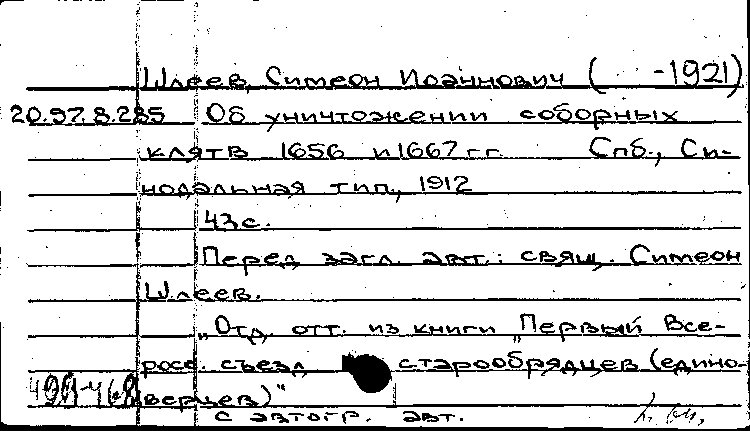 Шлеев, Симеон Иоаннович (   -1921)
20.97.8.285 Об уничтожении соборных
клятв 1656 и 1667 гг. Спб., Си-
нодальная тип., 1912
43 с.
Перед загл. авт.: свящ. Симеон
Шлеев.
"Отд. отт. из книги "Первый Все-
росс. съезд старообрядцев (едино-
верцев)"
с автогр. авт.